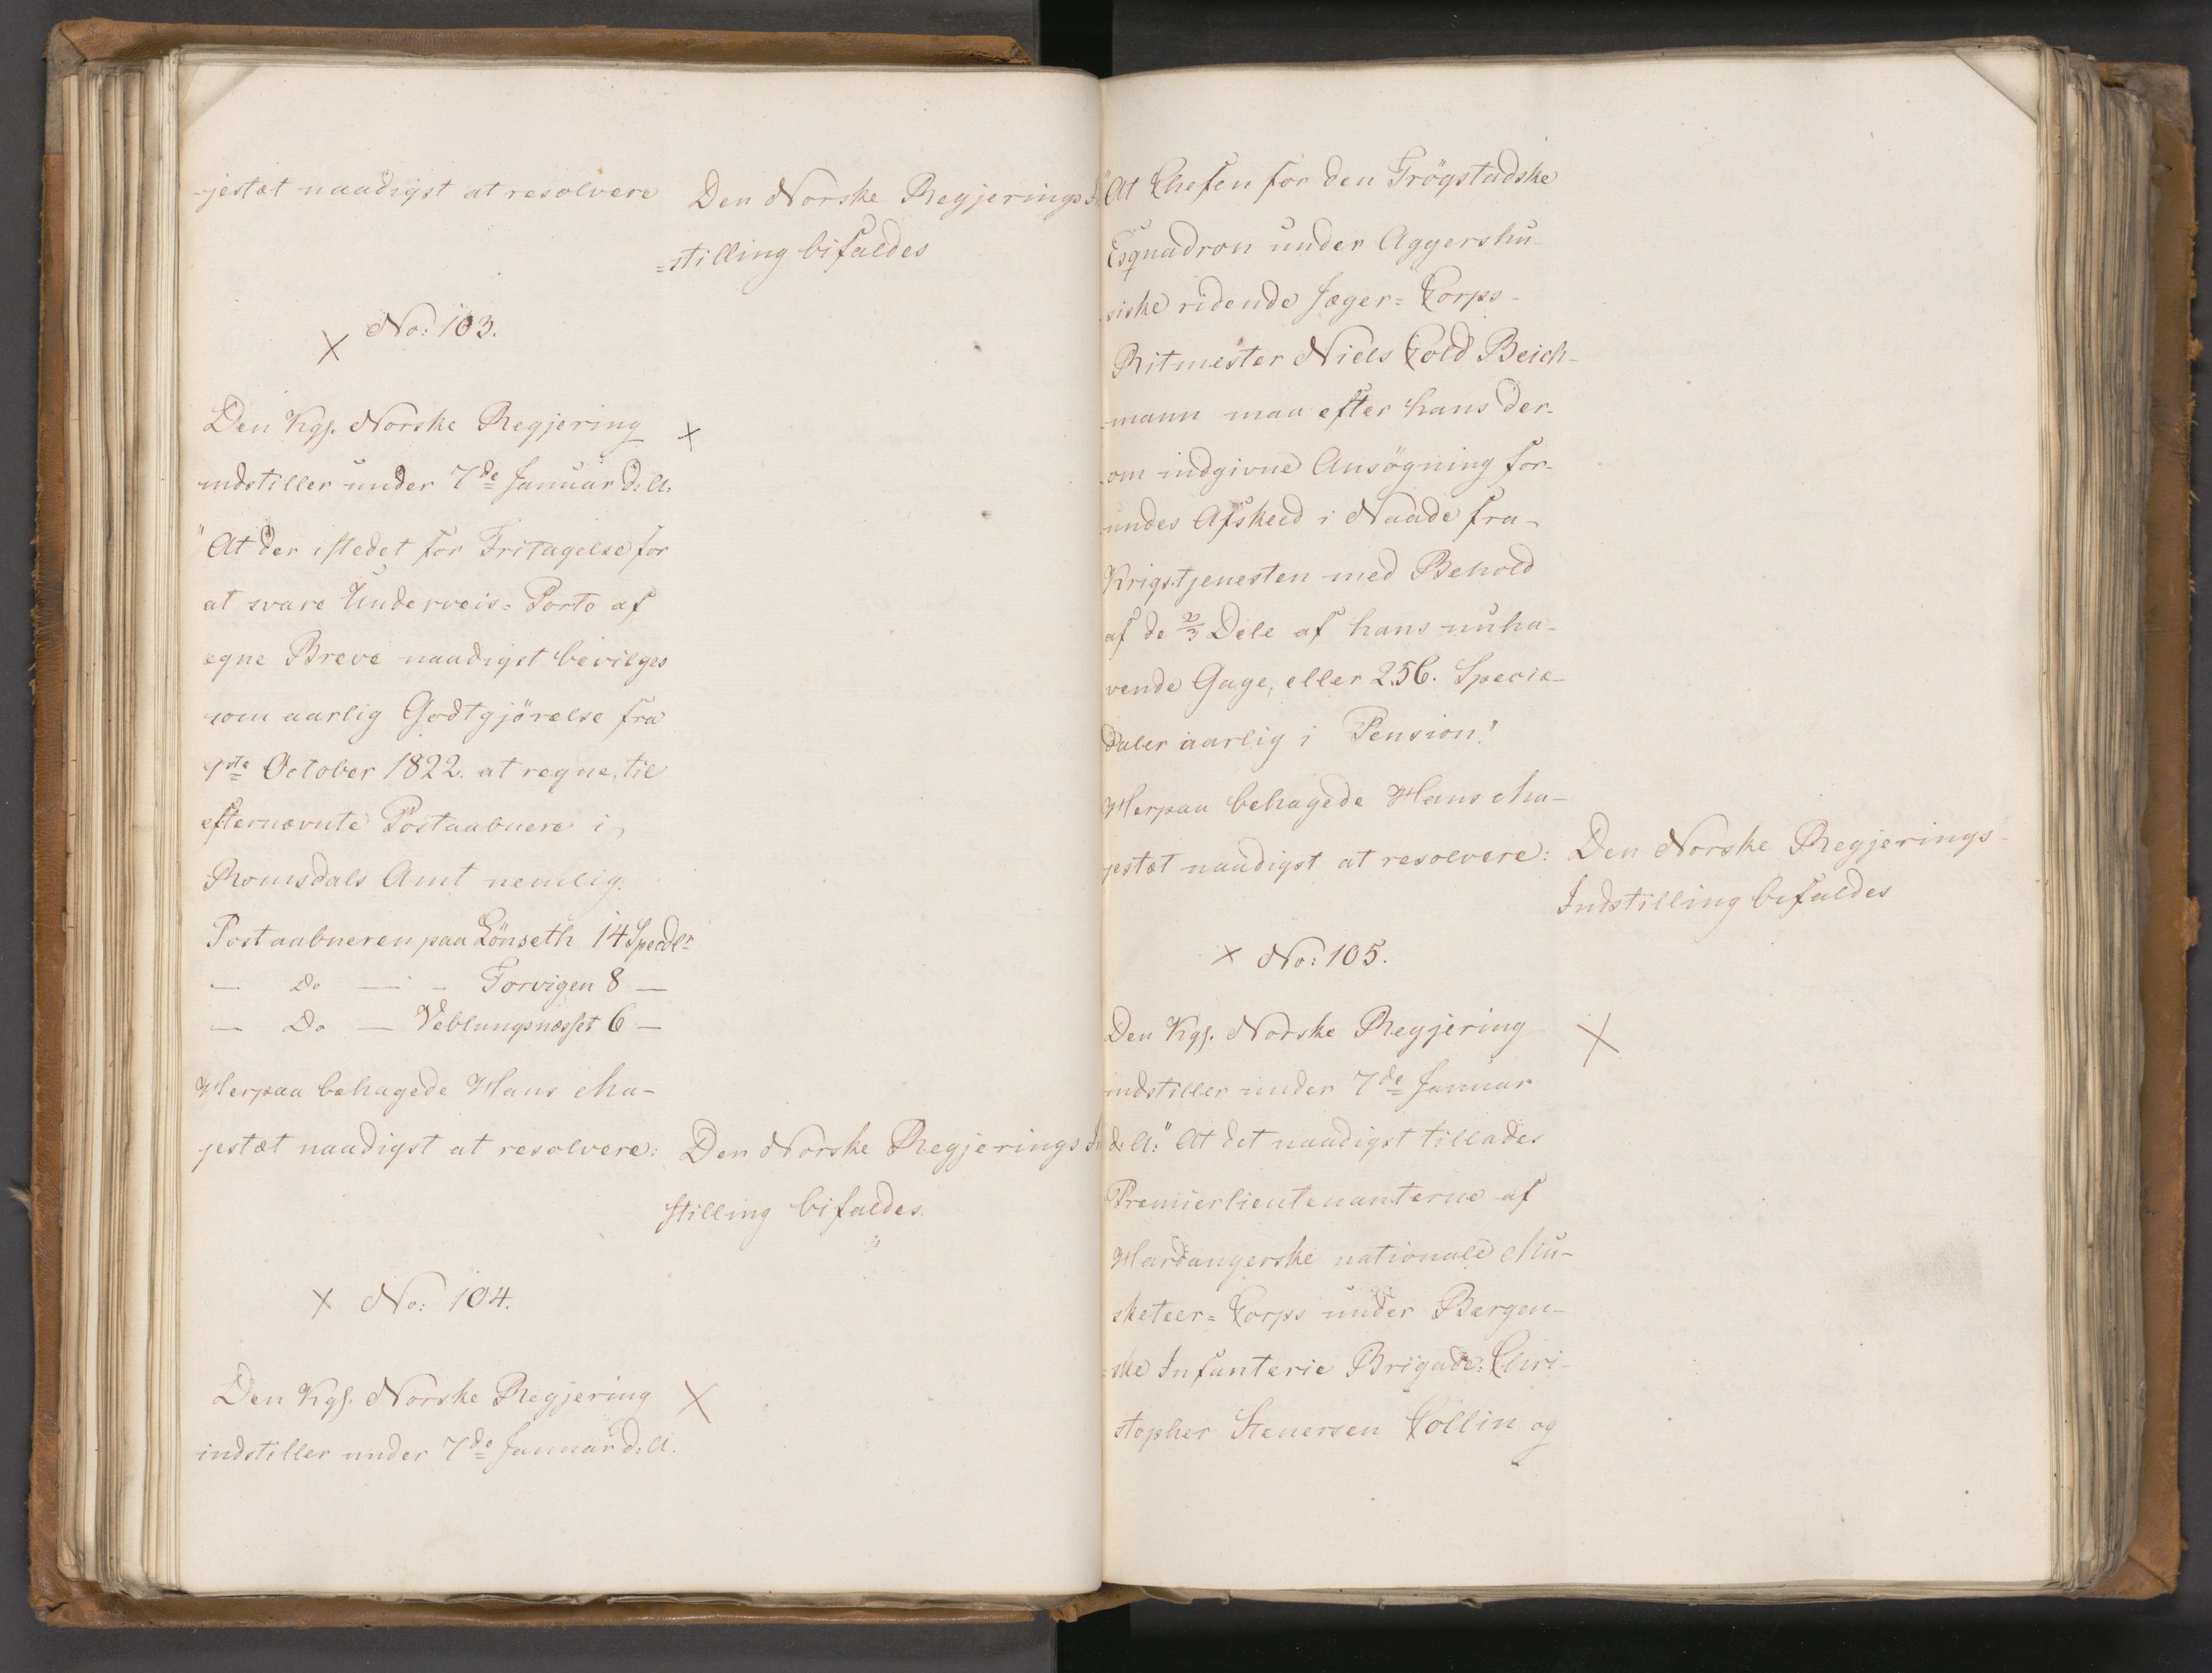 -jestæt naadigst at resolvere
Den Norske Regjerings In
=stilling bifaldes
No: 103.
Den Kgs. Norske Regjering
indstiller under 7de Januar d: A:
"At der istedet for Fritagelse for
at svare Underveis= Porto af
egne Breve naadigst bevilges
som aarlig Godtgjörelse fra
1ste October 1822. at regne, til
efternævnte Postaabnere i
Romsdals Amt nemlig.
Postaabneren paa Lönseth 14 Specdlr
— Do — - Torvigen 8 —
— Do — Veblungsnæsset 6 —
Herpaa behagede Hans Ma-
jestæt naadigst at resolvere:
Den Norske Regjerings In
stilling bifaldes.
No: 104.
Den Kgs. Norske Regjering
indstiller under 7de Januar d: A.
"At Chefen for den Trögstadske
Esquadron under Aggershu-
siske ridende Jæger= Corps-
Ritmester Niels Cold Beich-
-mann maa efter hans der-
om indgivne Ansögning for-
undes Afskeed i Naade fra
Krigstjenesten med Behold
af de 2/3 Dele af hans nuha-
vende Gage, eller 256. Specie-
daler aarlig i Pension."
Herpaa behagede Hans Ma-
jestæt naadigst at resolvere:
Den Norske Regjerings
Indstilling bifaldes
No: 105.
Den Kgs. Nodske Regjering
indstiller under 7de Januar
d: A: "At det naadigst tillades
Premierlieutenanterne af
Hardangerske nationale Mu-
sketeer= Corps under Bergen-
=ske Infanterie Brigade: Chri-
stopher Stenersen Collin og